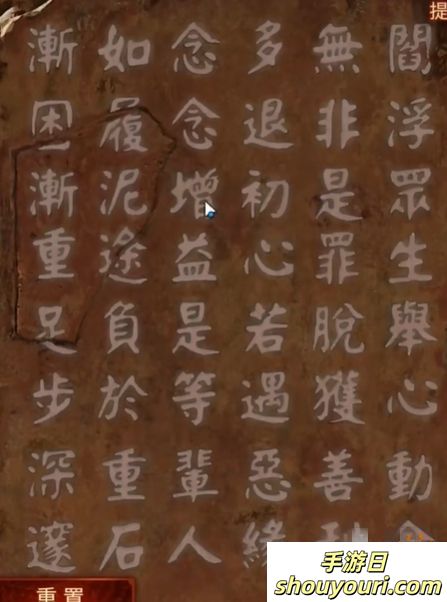 提
閻浮眾生舉心動
無非是罪脫獲善
多退初心若遇惡緣
念念增益是等輩人
如履泥途負於重石
漸困漸重足步深邃
重置
手游日
shouyouri.com